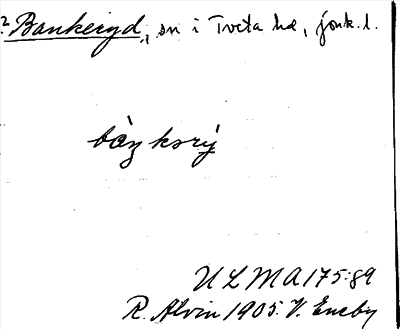 ? Bankeryd, sn i Tveta hd, jönk. l.
bàŋksrý
ULMA 175:89
R. Alvin 1905. V. Eneby